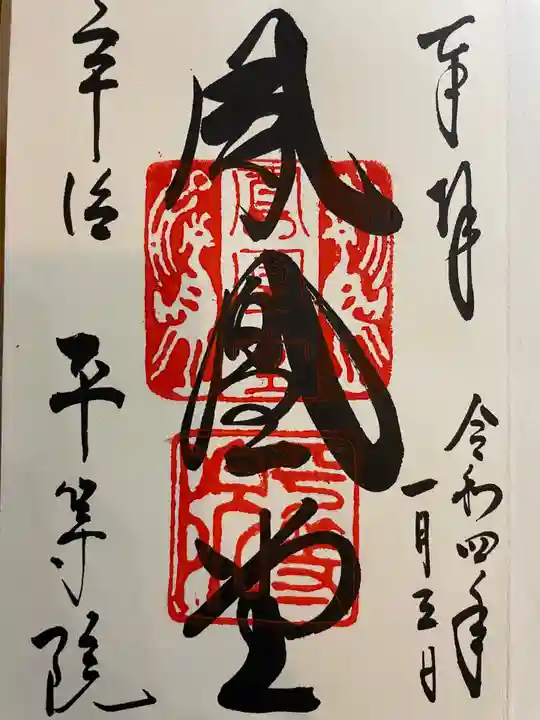 奉拝
令和四年
一月三日
鳳凰堂
鳳凰堂
宇治
平等院